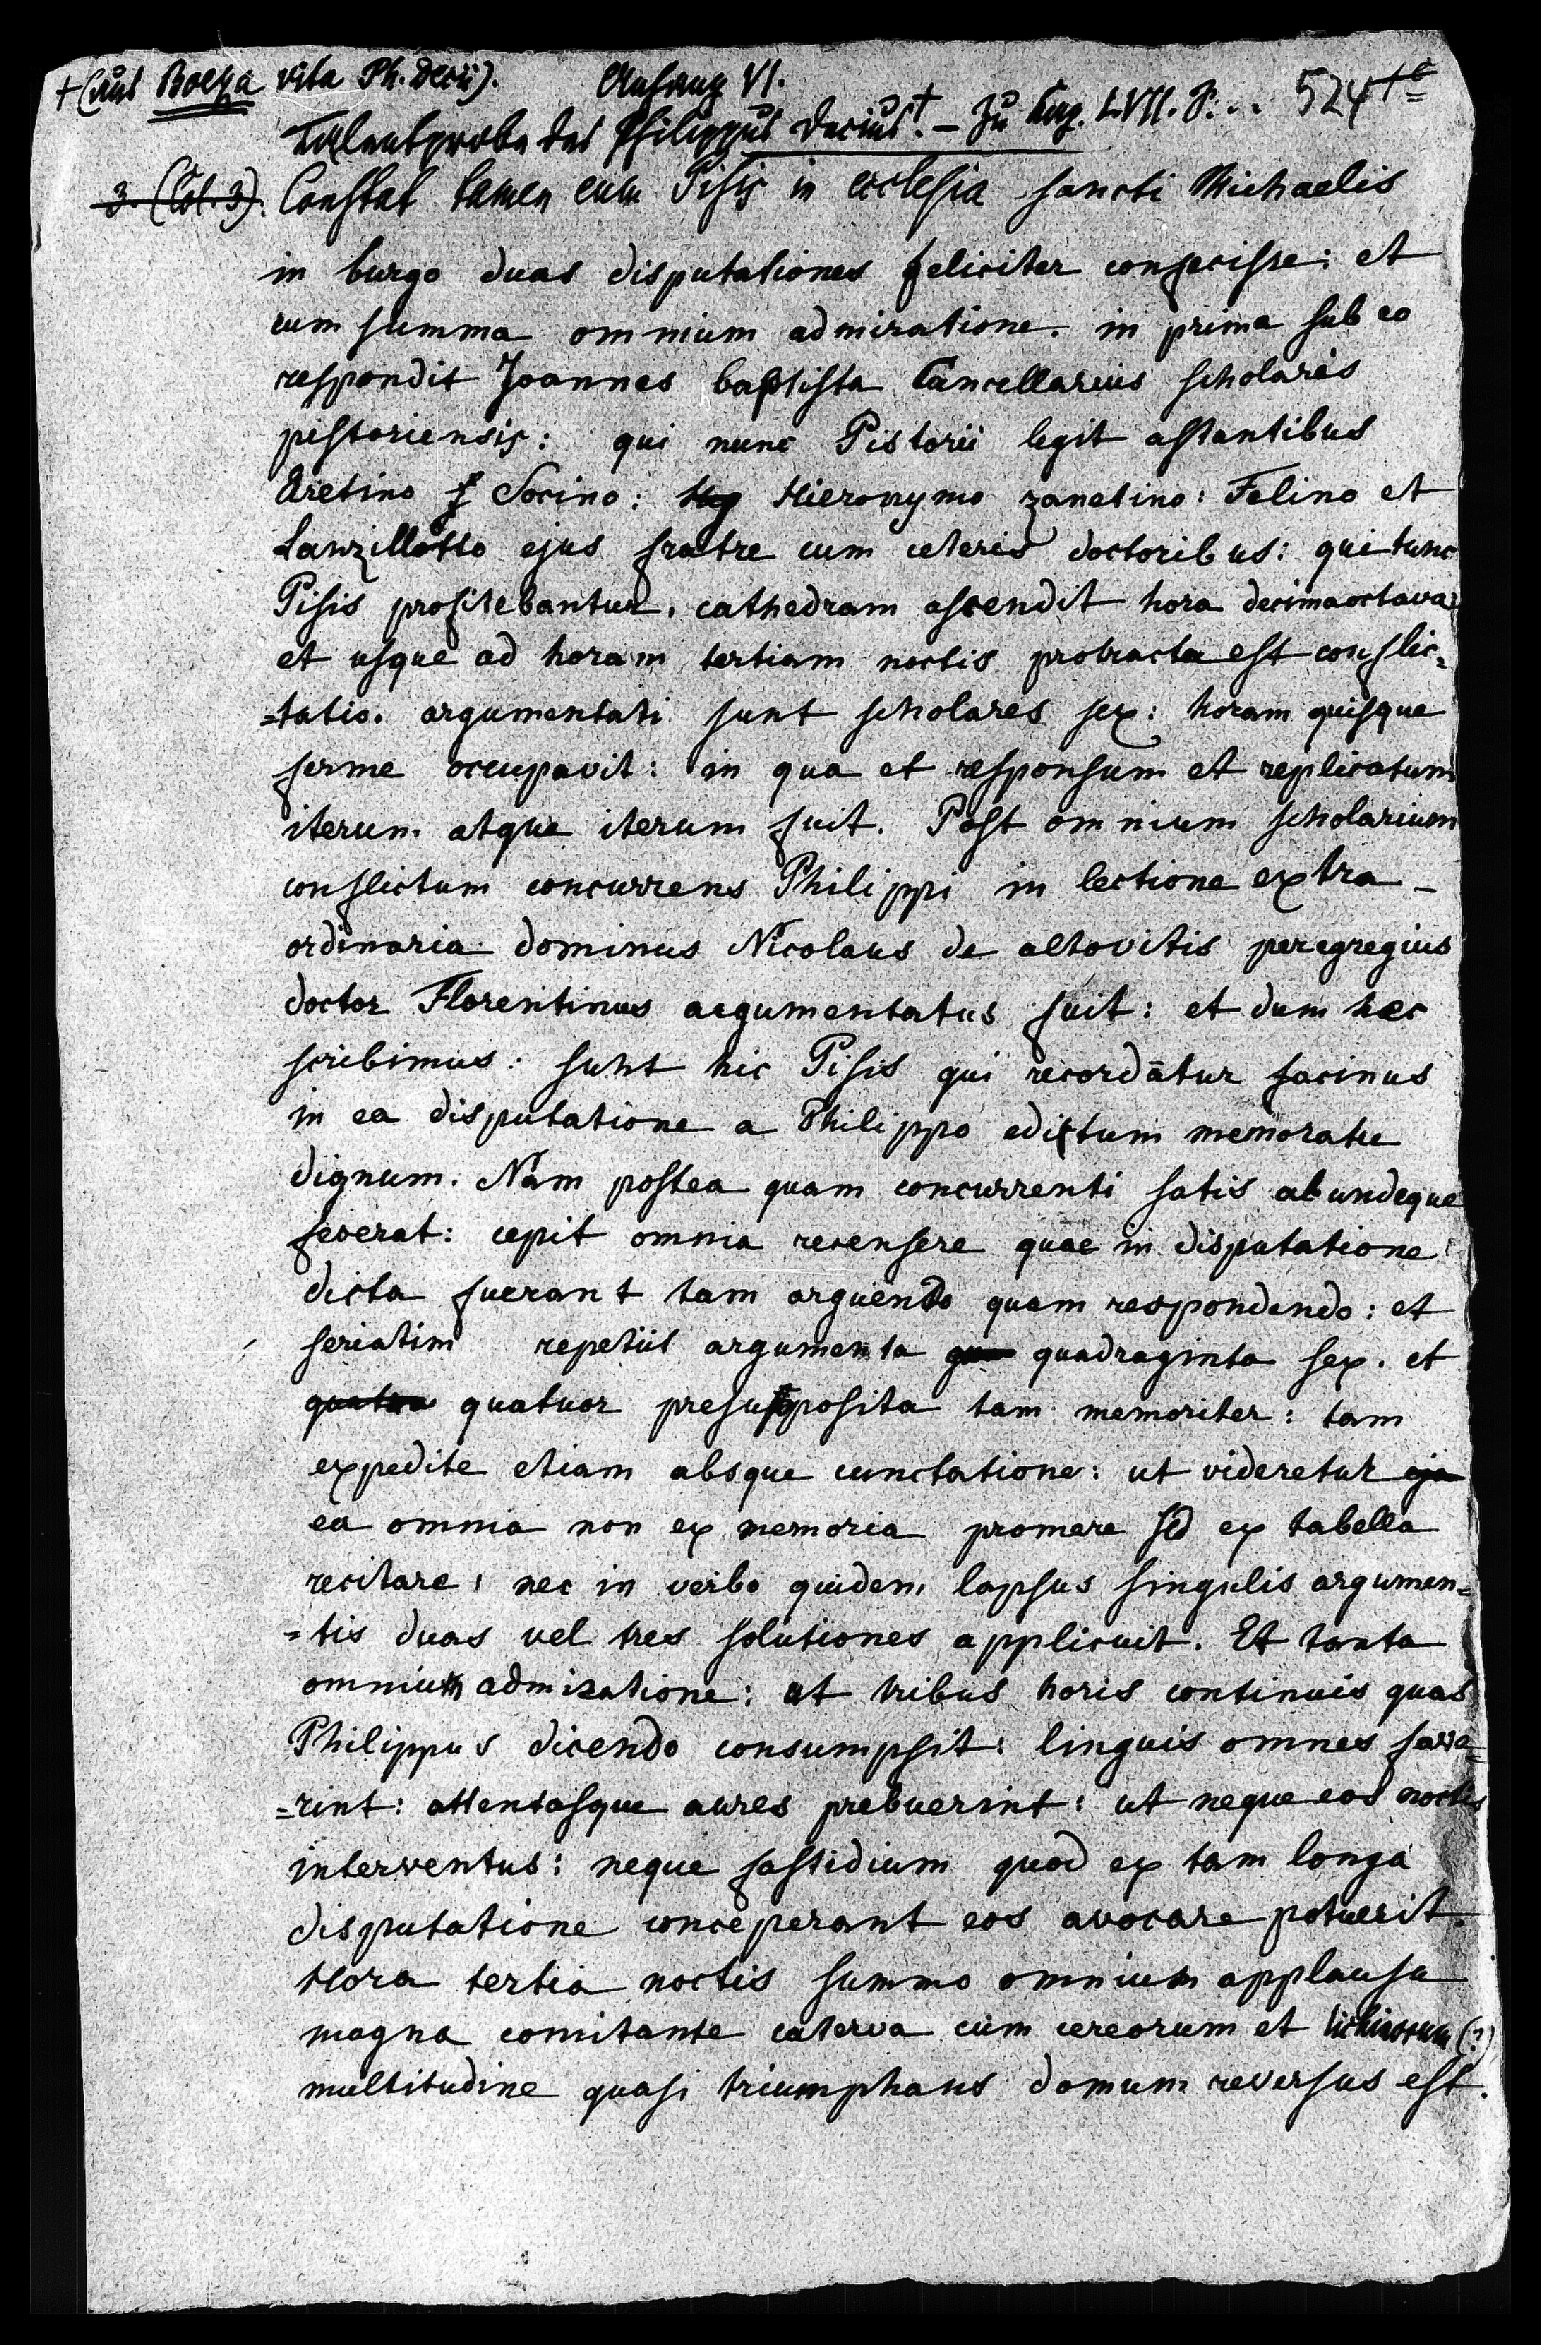 + (aus Boeza vita Ph. Decii). Anhang VI. 524
Talentprobe des Philippus Decius.+ — Zu Cap. LVII. S. . .
3. (Col. 3). Constat tamen eum Pisis in ecclesia sancti Michaelis
in burgo duas disputationes feliciter confecisse: et
cum summa omnium admiratione. in prima sub eo
respondit Joannes baptista Cancellarius scholaris
pistoriensis: qui nunc Pistorii legit astantibus
Aretino & Socino: Hieronymo zanetino: Felino et
Lanzillotto ejus fratre cum ceteris doctoribus: qui tunc
Pisis profitebantur. cathedram ascendit hora decimaoctava
et usque ad horam tertiam noctis protracta est conflic=
=tatio. argumentati sunt scholares sex: horam quisque
ferme occupavit: in qua et responsum et replicatum
iterum atque iterum fuit. Post omnium scholarium
conflictum concurrens Philippi in lectione extra-
ordinaria dominus Nicolaus de altovitis peregregius
doctor Florentinus argumentatus fuit: et dum hec
scribimus: sunt hic Pisis qui recordātur facinus
in ea disputatione a Philippo editum memoratu
dignum. Nam postea quam concurrenti satis abundeque
fecerat: cepit omnia recensere quae in disputatione
dicta fuerant tam arguendo quam respondendo: et
seriatim repetiit argumenta quadraginta sex. et
quatuor presupposita tam memoriter: tam
expedite etiam absque cunctatione: ut videretur
ea omnia non ex memoria promere sed ex tabella
recitare: nec in verbo quidem lapsus singulis argumen=
=tis duas vel tres solutiones applicuit. Et tanta
omnium admiratione: ut tribus horis continuis quas
Philippus dicendo consumpsit: linguis omnes fava=
=rint: attentasque aures prebuerint: ut neque eos noctis
interventus: neque fastidium quod ex tam longa
disputatione conceperant eos avocare potuerit.
Hora tertia noctis summo omnium applausu
magna comitante caterva cum cereorum et (?)
multitudine quasi triumphans domum reversus est.